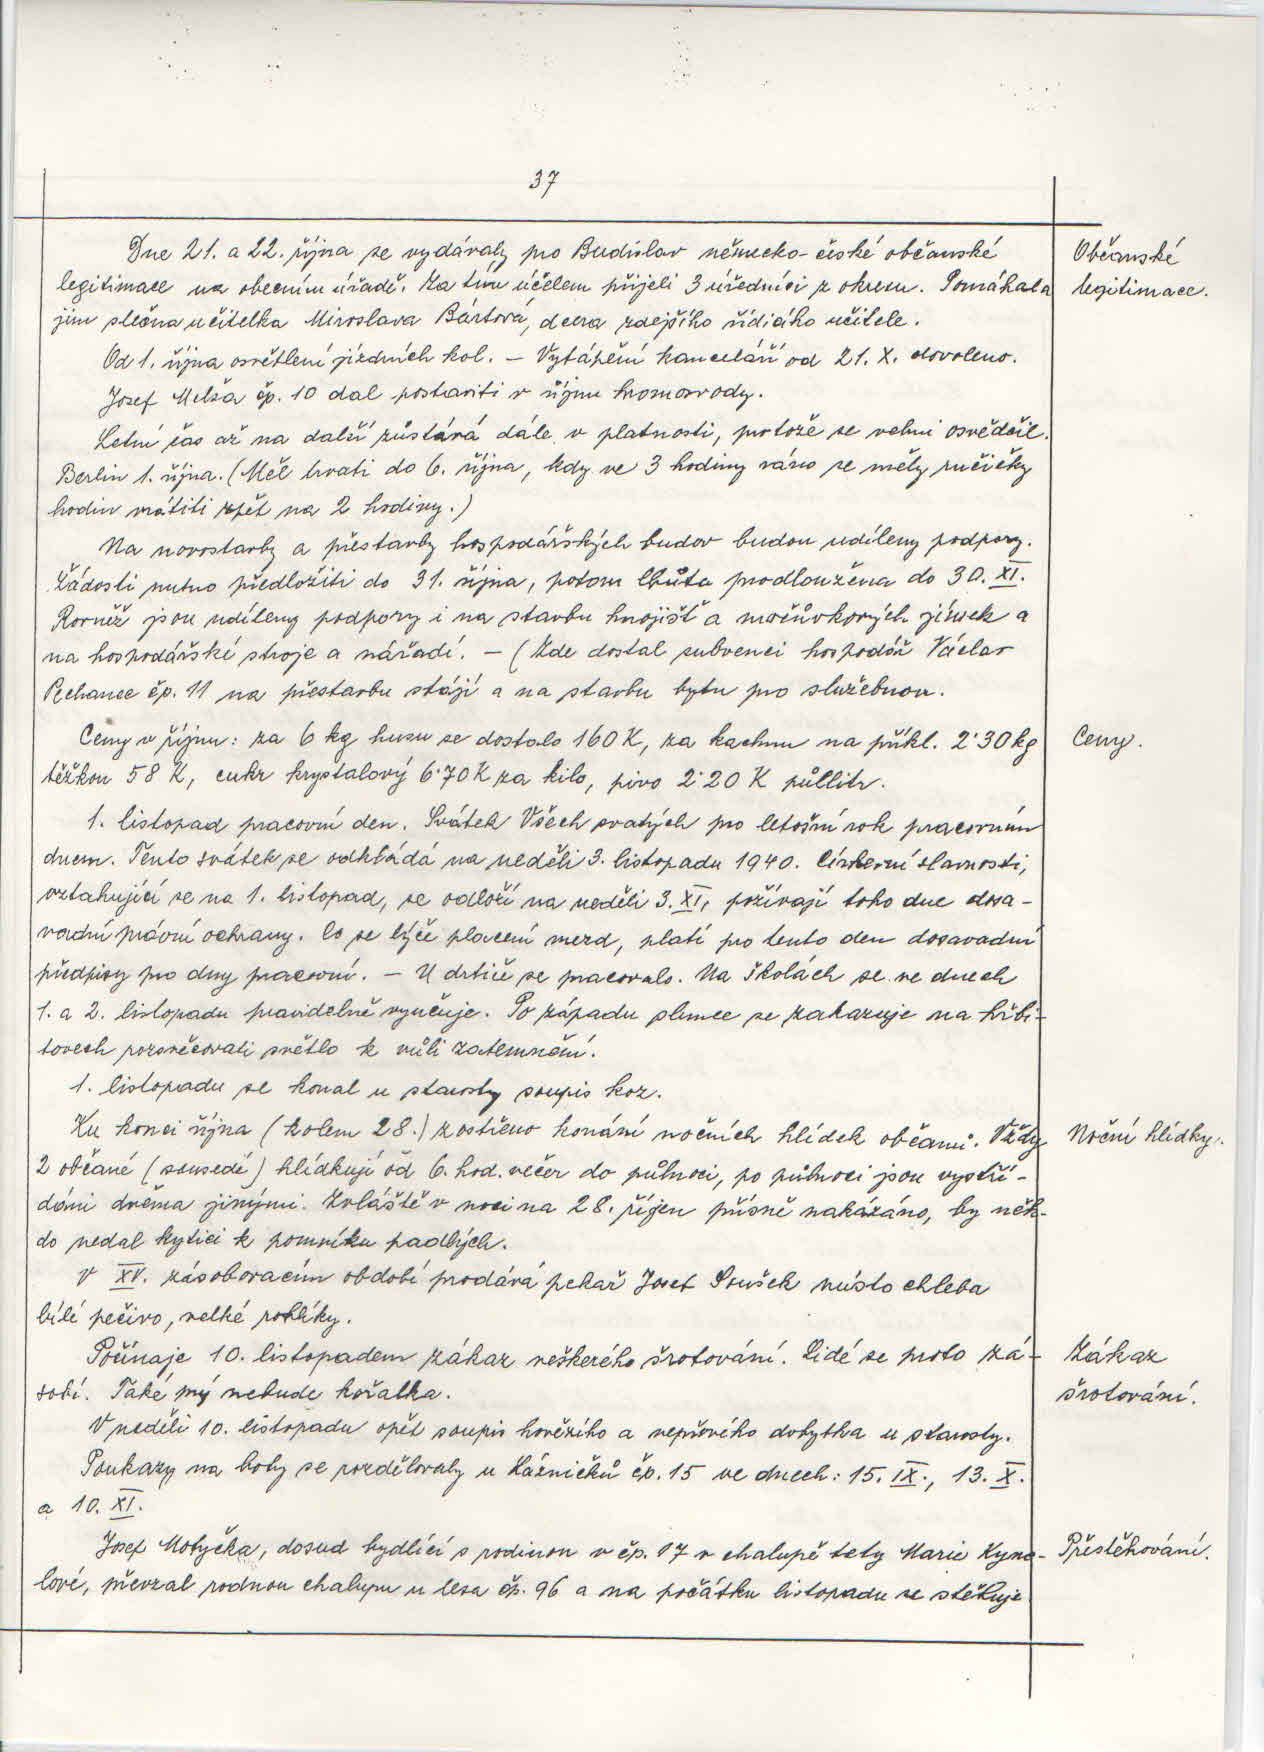 37
Dne 21. a 22. října se vydávaly pro Budislav německo-české občanské
Občanské
legitimace na obecním úřadě. Za tím účelem přijeli 3 úředníci z okresu. Pomáhala
legitimace.
jim slečna učitelka Miroslava Bártová, dcera zdejšího řídícího učitele.
Od 1. října osvětlení jízdních kol. – Vytápění kanceláří od 21. X. dovoleno.
Josef Melša čp. 10 dal postaviti v říjnu hromosvody.
Letní čas až na další zůstává dále v platnosti, protože se velmi osvědčil.
Berlin 1. října. (Měl trvati do 6. října, kdy ve 3 hodiny ráno se měly ručičky
hodin vrátiti zpět na 2 hodiny.)
Na novostavby a přestavby hospodářských budov budou udíleny podpory.
Žádosti nutno předložiti do 31. října, potom lhůta prodloužena do 30. XI.
Rovněž jsou udíleny podpory i na stavbu hnojišť a močůvkových jímek a
na hospodářské stroje a nářadí. – (Zde dostal subvenci hospodář Václav
Pechanec čp. 11 na přestavbu stájí a na stavbu bytu pro služebnou.
Ceny v říjnu: za 6 kg husu se dostalo 160 K, za kachnu na příkl. 2·30 kg
Ceny.
těžkou 58 K, cukr krystalový 6·70 K za kilo, pivo 2·20 K půllitr.
1. listopad pracovní den. Svátek Všech svatých pro letošní rok pracovním
dnem. Tento svátek se odkládá na neděli 3. listopadu 1940. Církevní slavnosti,
vztahující se na 1. listopad, se odloží na neděli 3. XI, požívají toho dne dosa-
vadní právní ochrany. Co se týče placení mezd, platí pro tento den dosavadní
předpisy pro dny pracovní. – U drtiče se pracovalo. Na školách se ve dnech
1. a 2. listopadu pravidelně vyučuje. Po západu slunce se zakazuje na hřbi-
tovech rozsvěcovati světlo k vůli zatemnění.
1. listopadu se konal u starosty soupis koz.
Ku konci října (kolem 28.) zostřeno konání nočních hlídek občanů. Vždy
Noční hlídky.
2 občané (sousedé) hlídkují od 6. hod. večer do půlnoci, po půlnoci jsou vystří-
dáni dvěma jinými. Zvláště v noci na 28. říjen přísně nakázáno, by něk-
do nedal kytici k pomníku padlých.
V XV. zásobovacím období prodává pekař Josef Soušek místo chleba
bílé pečivo, velké rohlíky.
Počínaje 10. listopadem zákaz veškerého šrotování. Lidé se proto zá-
Zákaz
sobí. Také prý nebude kořalka.
šrotování.
V neděli 10. listopadu opět soupis hovězího a vepřového dobytka u starosty.
Poukazy na boty se rozdělovaly uHázničků čp. 15 ve dnech: 15. IX., 13. X.
a 10. XI.
Josef Motyčka, dosud bydlící s rodinou v čp. 17 v chalupě tety Marie Kyna-
Přestěhování.
lové, převzal rodnou chalupu u lesa čp. 96 a na počátku listopadu se stěhuje